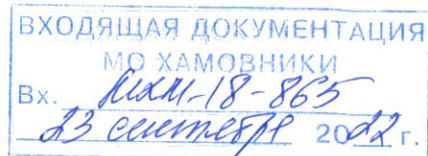 ВХОДЯЩАЯ ДОКУМЕНТАЦИЯ
МО ХАМОВНИКИ
Вх. МХМ-18-865
23 сентября 2022 г.